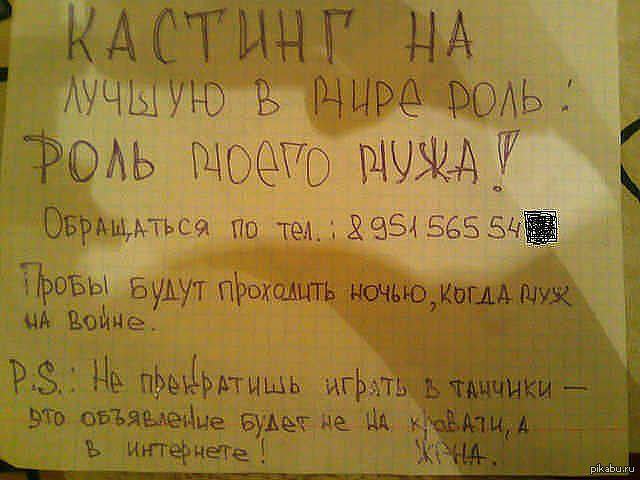 КАСТИНГ НА
ЛУЧШУЮ В МИРЕ РОЛЬ:
РОЛЬ МОЕГО МУЖА!
ОБРАЩАТЬСЯ ПО ТЕЛ.: 8 951 565 54
ПРОБЫ БУДУТ ПРОХОДИТЬ НОЧЬЮ, КОГДА МУЖ
НА ВОЙНЕ.
P.S.: НЕ ПРЕКРАТИШЬ ИГРАТЬ В ТАНЧИКИ —
ЭТО ОБЪЯВЛЕНИЕ БУДЕТ НЕ НА КРОВАТИ, А
В ИНТЕРНЕТЕ! ЖЕНА.
pikabu.ru